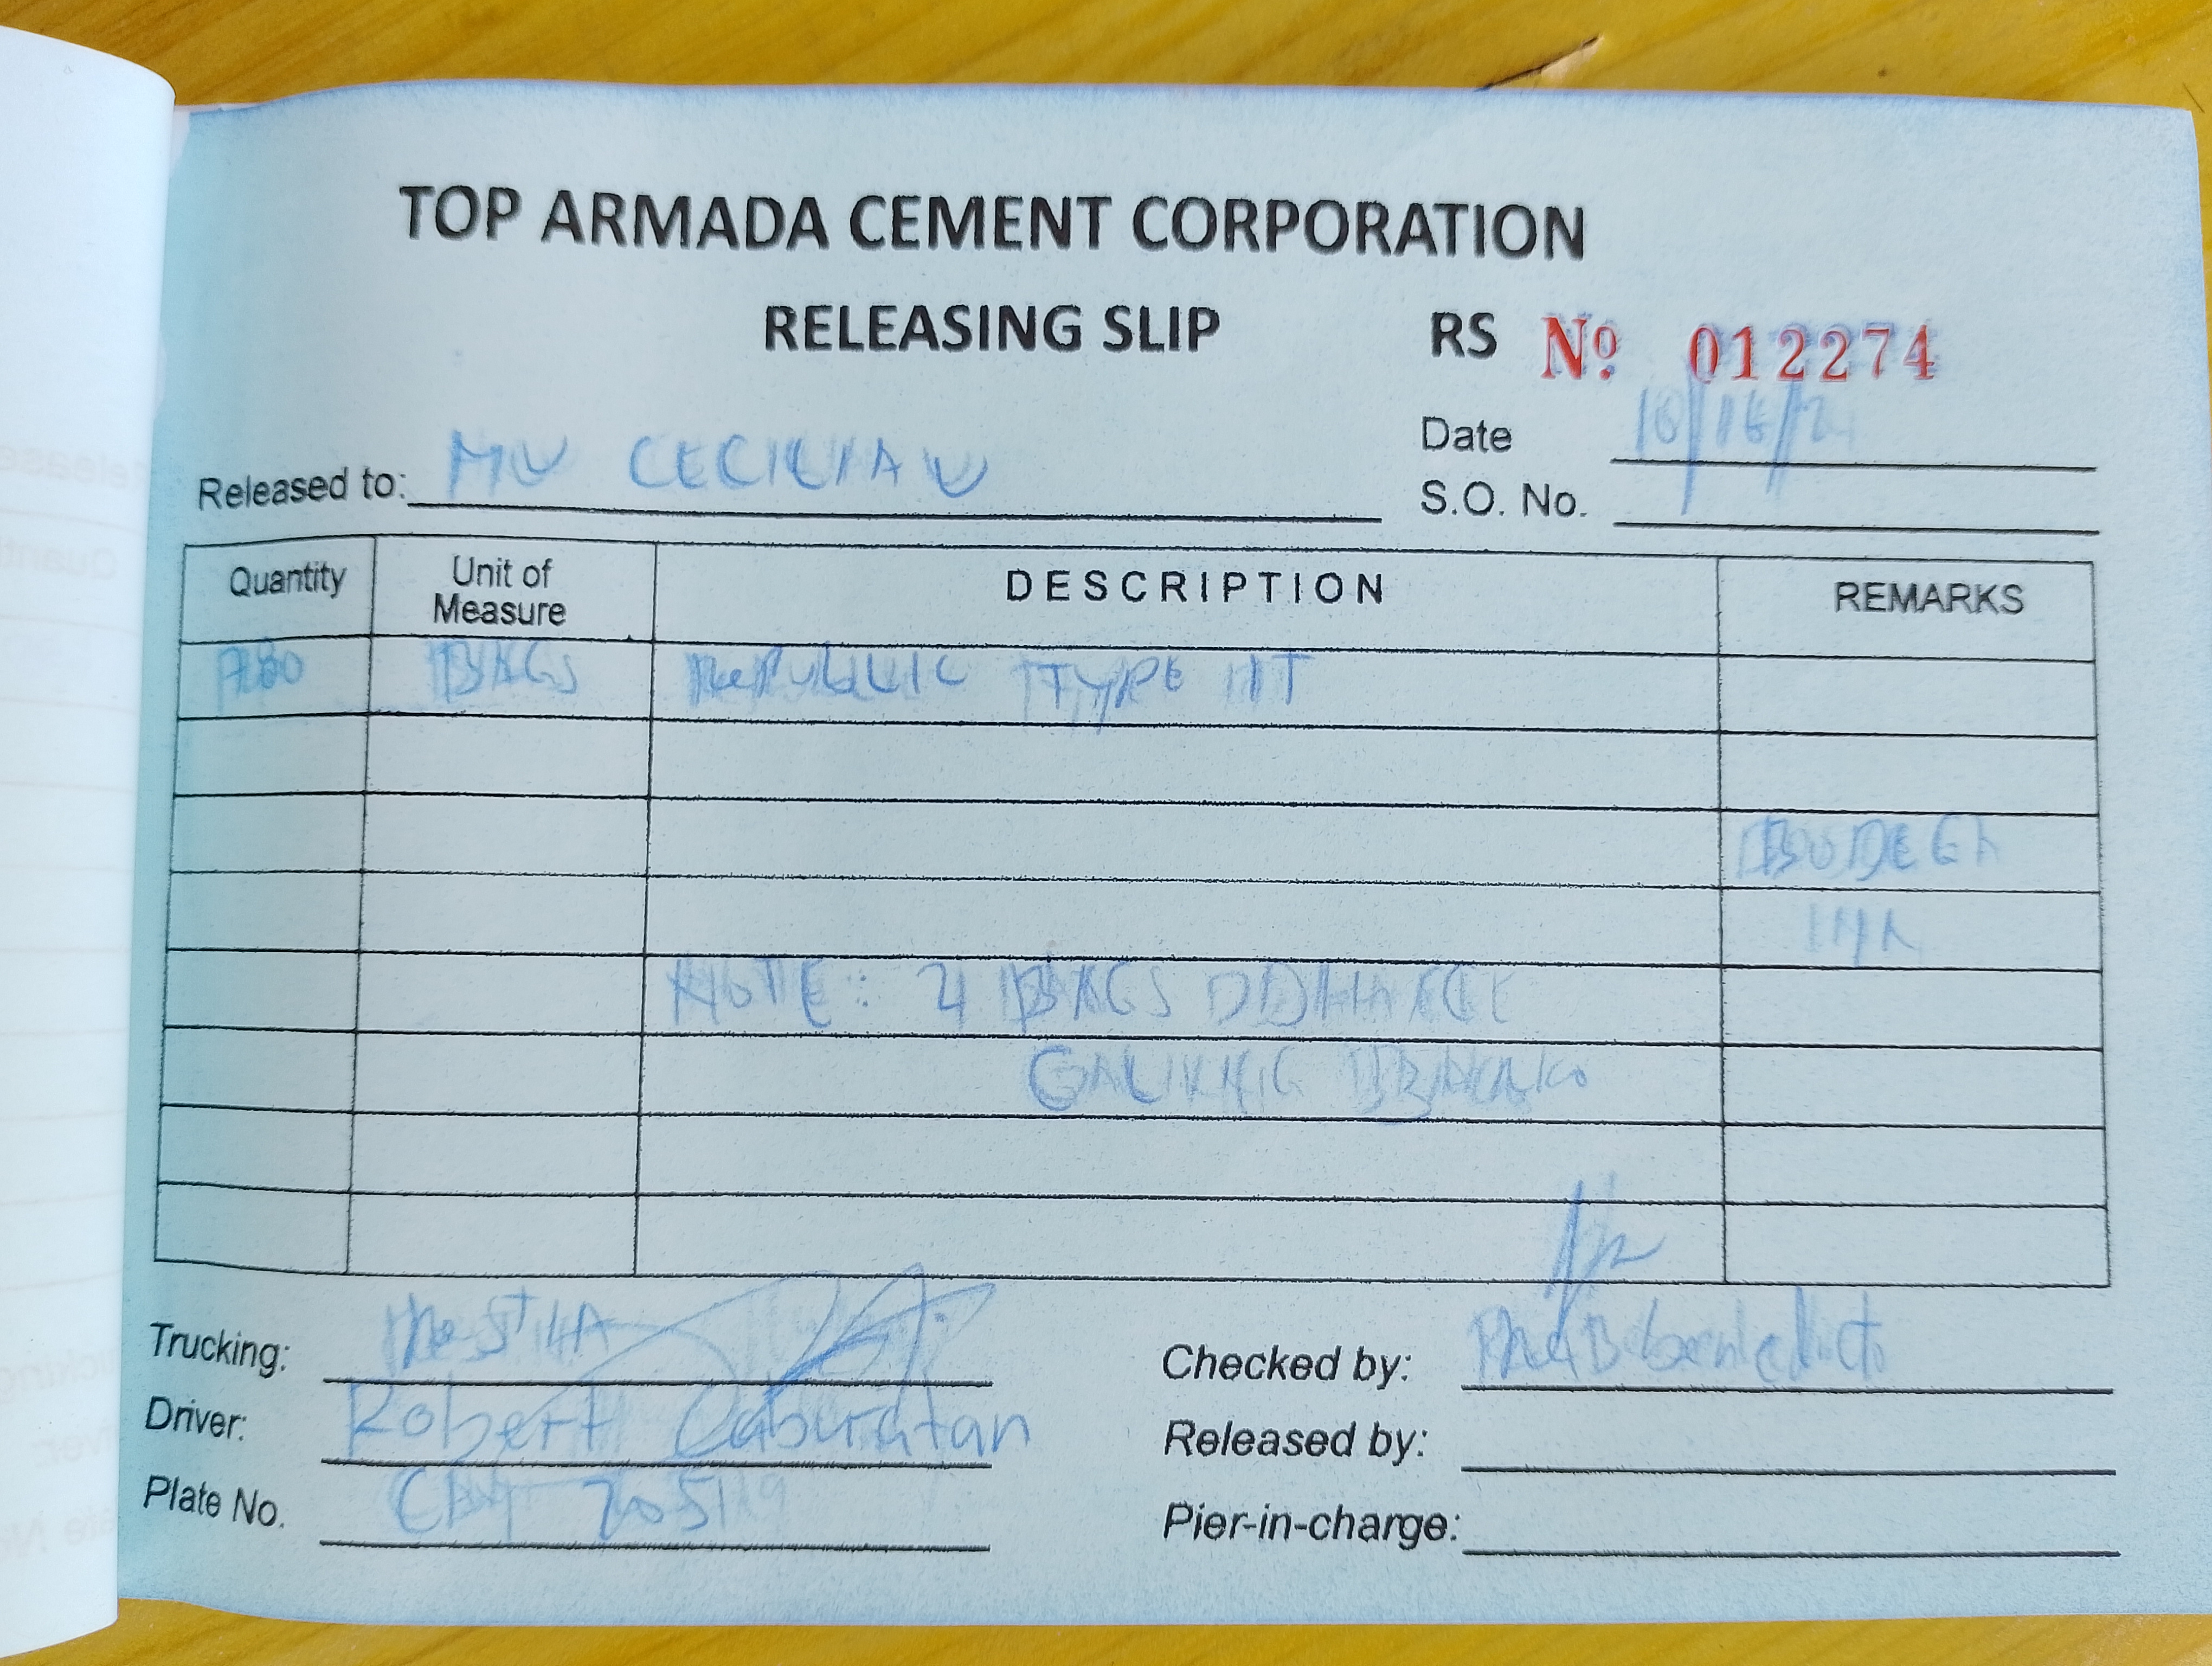 TOP ARMADA CEMENT CORPORATION
RELEASING SLIP RS Nº 012274
Date 10/16/2
Released to: MV CECILIA V
S.O. No.
Quantity Unit of Measure DESCRIPTION REMARKS
BAGS REPUBLIC TYPE 1T
BODEGA
NOTE: 4 BAGS
GALING BARKO
Trucking:
Checked by:
Driver: Robert Caburatan
Released by:
Plate No.
Pier-in-charge: